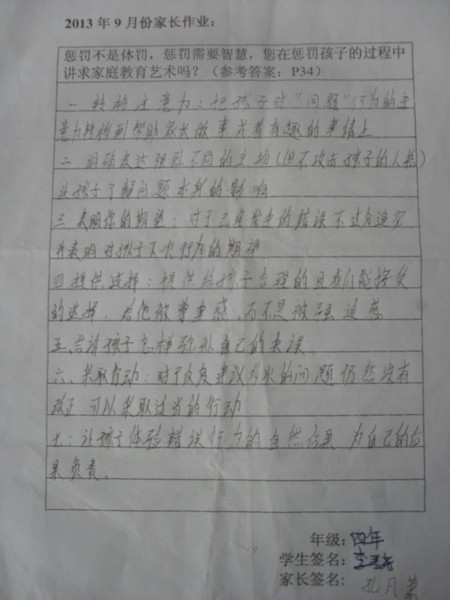 2013 年 9 月份家长作业：
惩罚不是体罚，惩罚需要智慧，您在惩罚孩子的过程中
讲求家庭教育艺术吗？（参考答案：P34）
一 转移注意力：把孩子对“问题”行为的注
意力转移到帮助家长做事或者有趣的事情上
二 明确表达强烈不同的立场（但不攻击孩子的人格）
让孩子了解问题 的影响
三 表明你的期望：对于已经发生的错误不过分追究
并表明对孩子下次行为的期望
四 提供选择：提供给孩子合理的且我们能接受
的选择，给他被尊重感，而不是被强迫感
五 告诉孩子怎样弥补自己的失误
六、采取行动：对于反复 的问题仍然没有
改正 可以采取适当的行动
七：让孩子体验错误行为的自然后果 为自己的后
果负责。
年级：四年
学生签名：
家长签名：孔凡